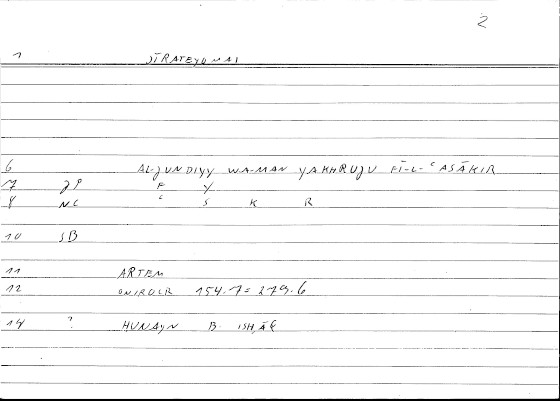 2
1 STRATEYOMAI
6 AL-JUNDIYY WA-MAN YAKHRUJU FĪ-L-ʿASĀKIR
7 JP F Y
8 NC ʿ S K R
10 SB
11 ARTEM
12 ONIROCR 154.7 = 279.6
14 ? HUNAYN B. ISḤĀQ